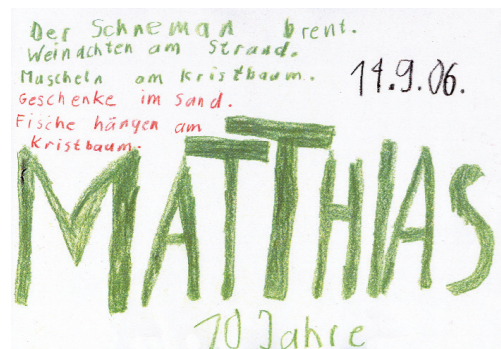 Der Schneman brent.
Weinachten am Strand.
Muscheln am Kristbaum.
Geschenke im Sand.
Fische hängen am
Kristbaum.
11.9.06.
MATTHIAS
10 Jahre